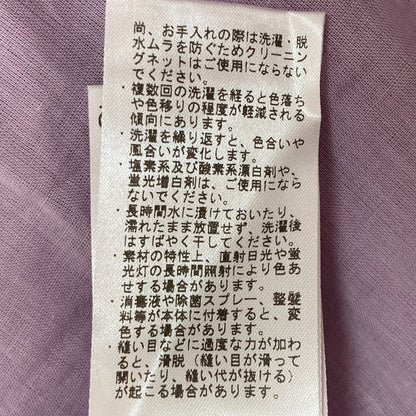 尚、お手入れの際は洗濯・脱
水ムラを防ぐためクリーニン
グネットはご使用にならない
でください。
・複数回の洗濯を経ると色落ち
や色移りの程度が軽減される
傾向にあります。
・洗濯を繰り返すと、色合いや
風合いが変化します。
・塩素系及び酸素系漂白剤や、
蛍光増白剤は、ご使用になら
ないでください。
・長時間水に漬けておいたり、
濡れたまま放置せず、洗濯後
はすばやく干してください。
・素材の特性上、直射日光や蛍
光灯の長時間照射により色あ
せする場合があります。
・消毒液や除菌スプレー、整髪
料等が本体に付着すると、変
色する場合があります。
・縫い目などに過度な力が加わ
ると、滑脱（縫い目が滑って
開いたり、縫い代が抜ける）
が起こる場合があります。